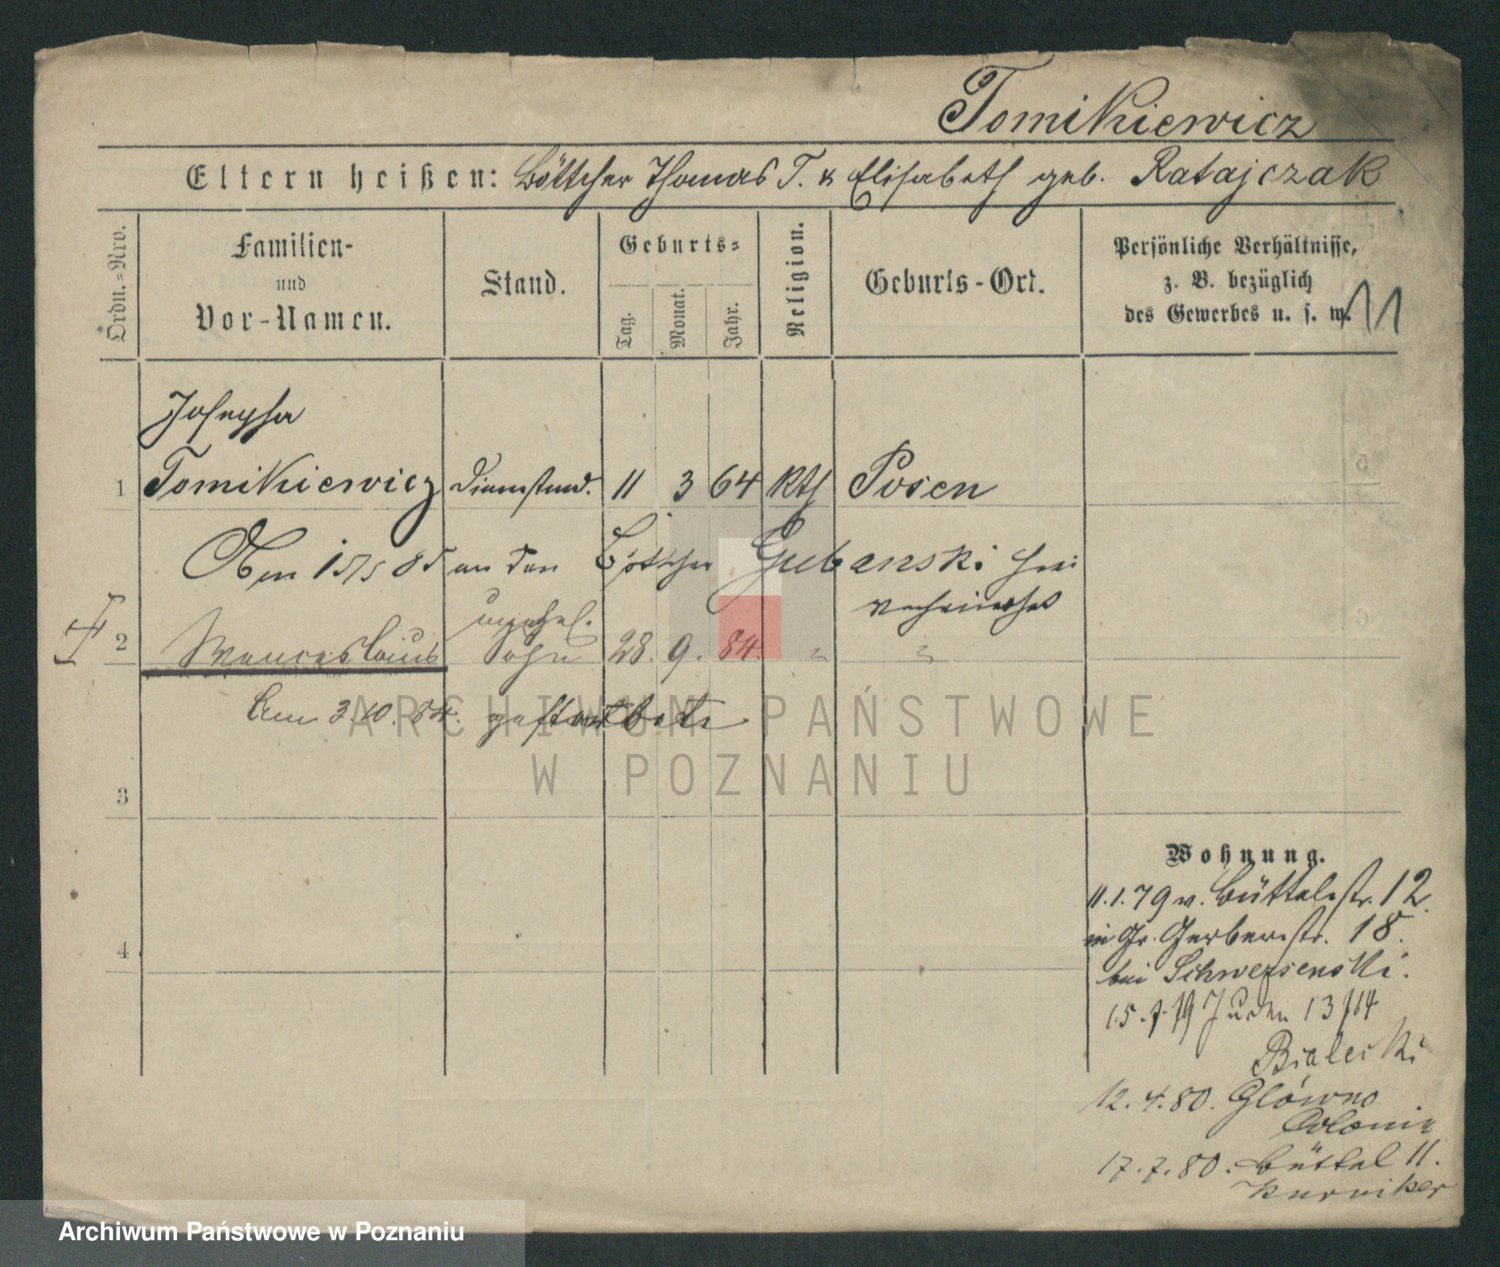 Tomikiewicz
Eltern heißen: Böttcher Thomas T. & Elisabeth geb. Ratajczak
Ordn.=Nro.
Familien-
und
Vor-Namen.
Stand.
Geburts=
Tag.
Monat.
Jahr.
Religion.
Geburts-Ort.
Persönliche Verhältnisse,
z. B. bezüglich
des Gewerbes u. s. w.
Josepha
1 Tomikiewicz 11 3 64 kth Posen
an den Böttcher Gubanski
unehel.
2 Wenceslaus Sohn 28. 9. 84. " "
Am 3.10.84.
3
4
Wohnung.
11.1.79 v. Büttelstr. 12.
in Gr. Gerberstr. 18.
bei Schwersenski.
15.7.79 Juden 13/14
Bialecki
12.4.80. Glówno
Colonie
17.7.80. Büttel 11.
Kurniker
ARCHIWUM PAŃSTWOWE
W POZNANIU
Archiwum Państwowe w Poznaniu